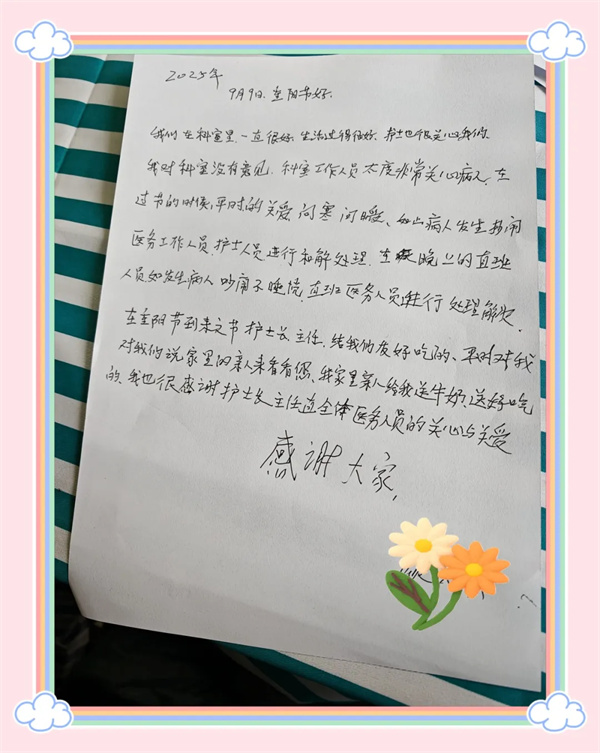 2025年
9月9日.重阳节好.
我们在科室里.一直很好.生活过得很好.护士也很关心我们.
我对科室没有意见.科室工作人员太度非常关心病人.在
过节的时候,平时的关爱.问寒问暖、如山病人发生捞闹
医务工作人员.护士人员进行和解处理.在晚上的直班
人员如发生病人吵闹不睡烧,直班医务人员进行处理解决.
在重阳节到来之书护士长主任.结我们友好吃的、平时对我
对我们说家里的亲人来看看您.我家里亲人给我送牛奶.送好吃
的.我也很感谢护士长主任直全体医务人员的关心与关爱
感谢大家.